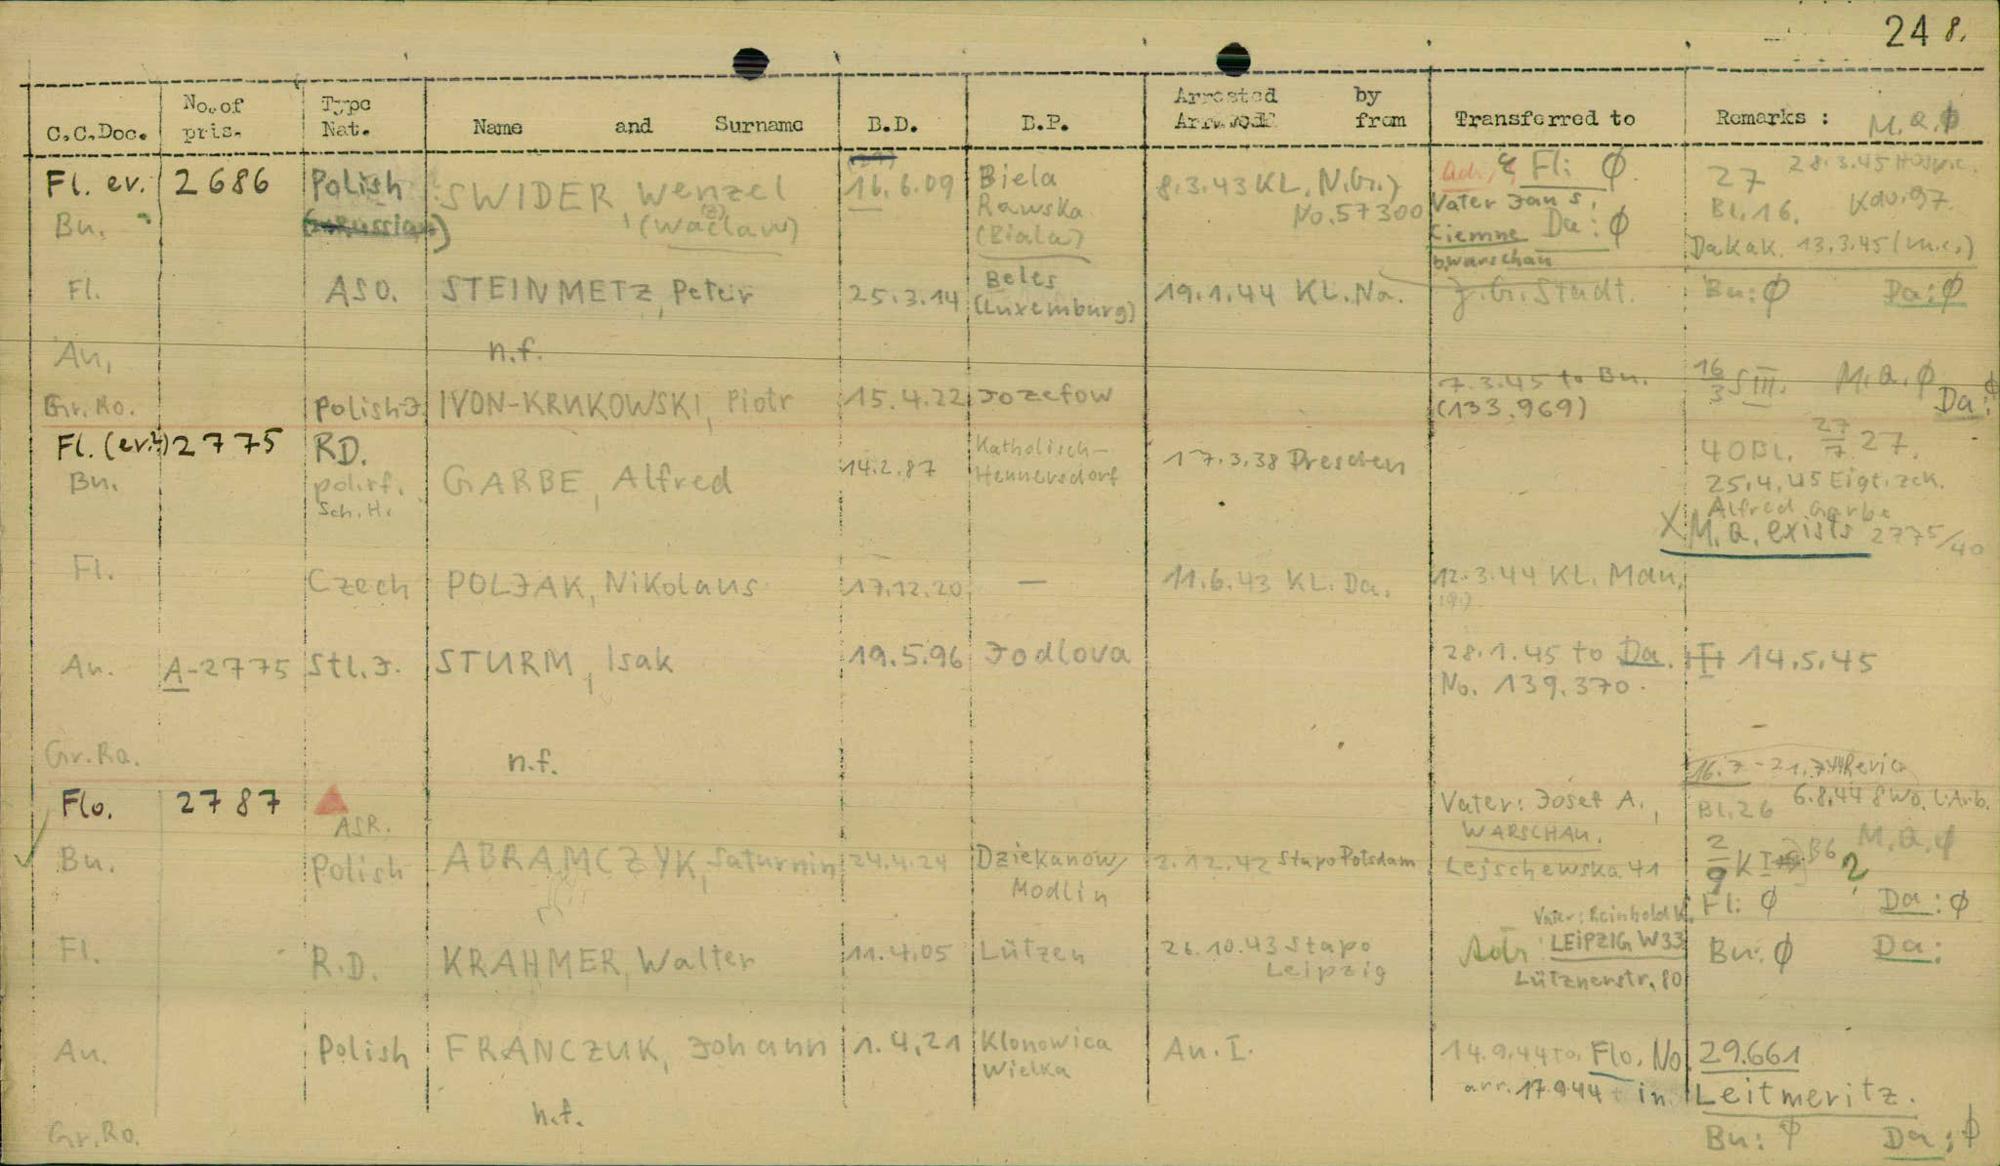 24 8.
C.C.Doc. No. of pris. Type Nat. Name and Surname B.D. B.P. Arrested by from Transferred to Remarks : M.a.ø
Fl. ev. 2686 Polish SWIDER Wenzel 16.6.09 Biela 8.3.43 KL. N.Gr. Fl: Ø. 27 28.3.45
Bu. (Waclaw) Rawska No. 57300 Vater Jan S. Bl. 16. Kdv. 97.
(Biala) Da: Ø
b. Warschau 13.3.45 (m.c.)
Fl. ASO. STEINMETZ, Peter 25.3.14 Beles (Luxemburg) 19.1.44 KL. Na. Bu: Ø Da: Ø
Au, n.f.
Gr. Ro. Polish J. IVON-KRUKOWSKI, Piotr 15.4.22 Jozefow 7.3.45 to Bu. (133.969) 16/3 S III. M.a.Ø Da: Ø
Fl. (ev.) 2775 RD. GARBE, Alfred 14.2.87 Katholisch-Hennersdorf 17.3.38 Dresden 40 Bl. 27/7 27.
Bu. pol.rf. 25.4.45 Eigt. zck.
Sch. H. Alfred Garbe
X M.a. exists 2775/40
Fl. Czech POLJAK, Nikolaus 17.12.20 — 11.6.43 KL. Da. 12.3.44 KL. Mau.
Au. A-2775 Stl. J. STURM, Isak 19.5.96 Jodlova 28.1.45 to Da. 14.5.45
No. 139.370.
Gr. Ro. n.f.
16.7 - 21.7.44 Revier
Flo. 2787 Vater: Josef A., Bl. 26 6.8.44 8 Wo. l. Arb.
ASR. WARSCHAU.
Bu. Polish ABRAMCZYK, Saturnin 24.4.24 Dziekanow/ 2.12.42 Stapo Potsdam Lejschewska 41 2/9 K I B6 M.a.Ø ?
Modlin Fl: Ø Da: Ø
Vater: Reinhold K.
Fl. R.D. KRAHMER, Walter 11.4.05 Lützen 26.10.43 Stapo Leipzig Adr. LEIPZIG W33 Bu: Ø Da:
Lütznerstr. 80
Au. Polish FRANCZUK, Johann 1.4.21 Klonowica Wielka Au. I. 14.9.44 to Flo. No. 29.661
arr. 17.9.44 in Leitmeritz.
Gr. Ro. n.f. Bu: Ø Da: Ø